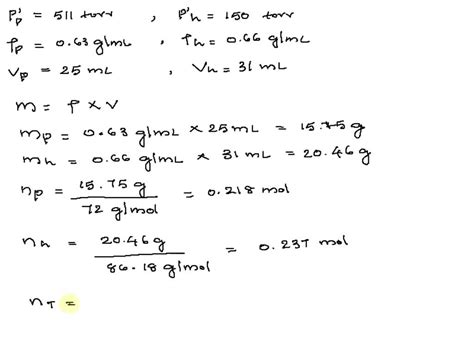 P°p = 511 torr , P°h = 150 torr
ρp = 0.63 g/mL , ρh = 0.66 g/mL
Vp = 25 mL , Vh = 31 mL
m = ρ × V
mp = 0.63 g/mL × 25 mL = 15.75 g
mh = 0.66 g/mL × 31 mL = 20.46 g
np = 15.75 g / 72 g/mol = 0.218 mol
nh = 20.46 g / 86.18 g/mol = 0.237 mol
nT =